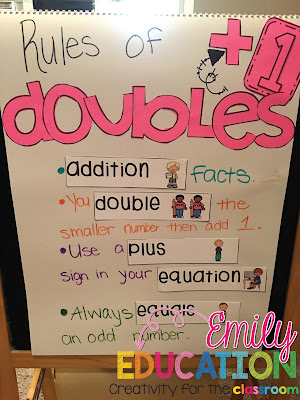 Rules of
+1
doubles
• addition facts.
• You double the
smaller number then add 1.
• Use a plus
sign in your equation
• Always equals
an odd number.
Emily
EDUCATION
Creativity for the classroom